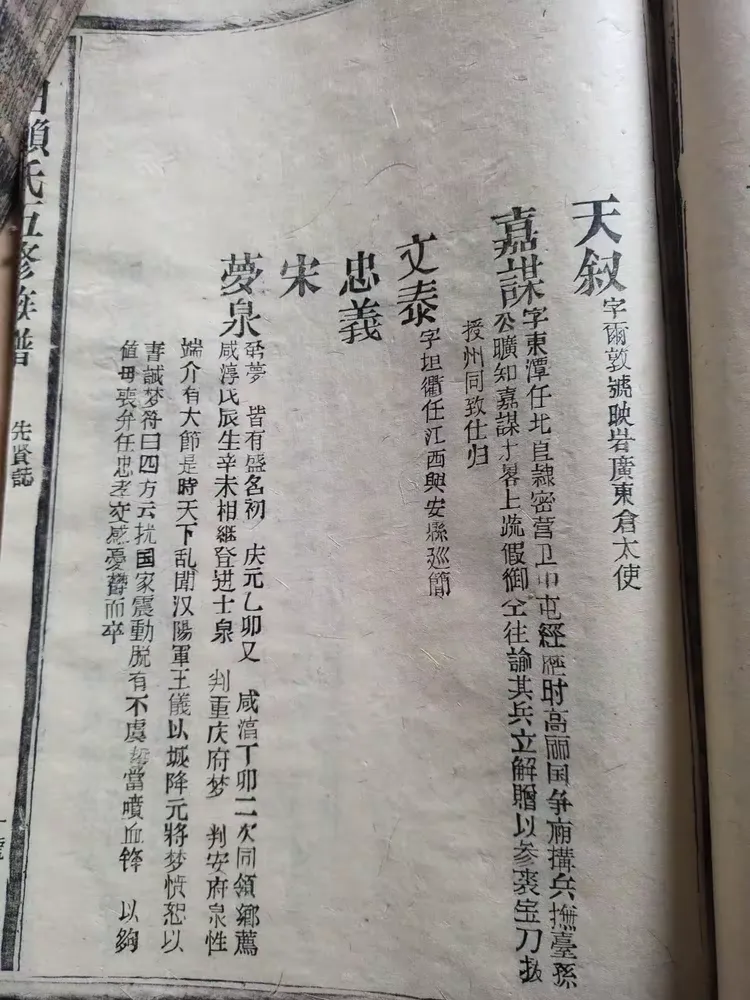 天叙
字爾敦號映岩廣東倉大使
嘉謀
字東潭任北直隸密营卫中屯經歷时高丽国争廟搆兵撫臺孫
公曠知嘉謀才畧上疏假御仝往諭其兵立解贈以参裘宝刀
授州同致仕归
文泰
字坦衢任江西興安縣巡簡
忠義
宋
夢泉
夢 皆有盛名初 庆元乙卯又 咸淳丁卯二次同領鄉薦
咸淳戊辰生辛未相繼登进士泉 判重庆府梦 判安府泉性
端介有大節是時天下乱聞汉陽軍王儀以城降元將梦憤恕以
書誠梦符曰四方云扰国家震動脱有不虞 當噴血鋒 以夠
值毋喪弁任忠孝交感憂 而卒
賴氏五修族譜
先賢誌